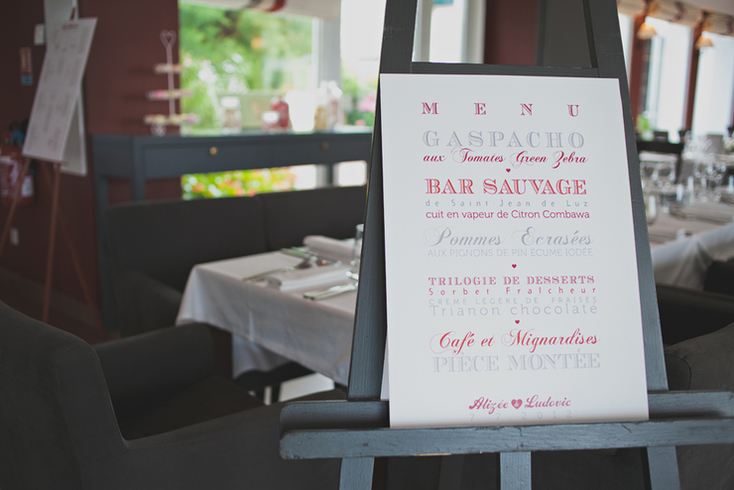 MENU
GASPACHO
aux Tomates Green Zebra
BAR SAUVAGE
de Saint Jean de Luz
cuit en vapeur de Citron Combawa
Pommes Ecrasées
AUX PIGNONS DE PIN ECUME IODÉE
TRILOGIE DE DESSERTS
Sorbet Fraîcheur
CRÈME LÉGÈRE DE FRAISES
Trianon chocolat
Café et Mignardises
PIÈCE MONTÉE
Alizée & Ludovic